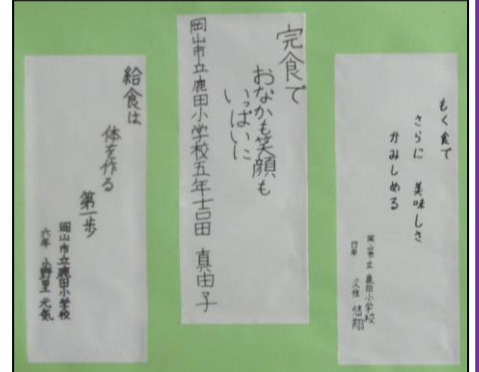 もく食で
さらに 美味しさ
かみしめる
岡山市立 鹿田小学校
四年 久保 悠翔
完食で
おなかも笑顔も
いっぱいに
岡山市立鹿田小学校五年吉田 真由子
給食は
体を作る
第一歩
岡山市立鹿田小学校
六年 小野里 元気